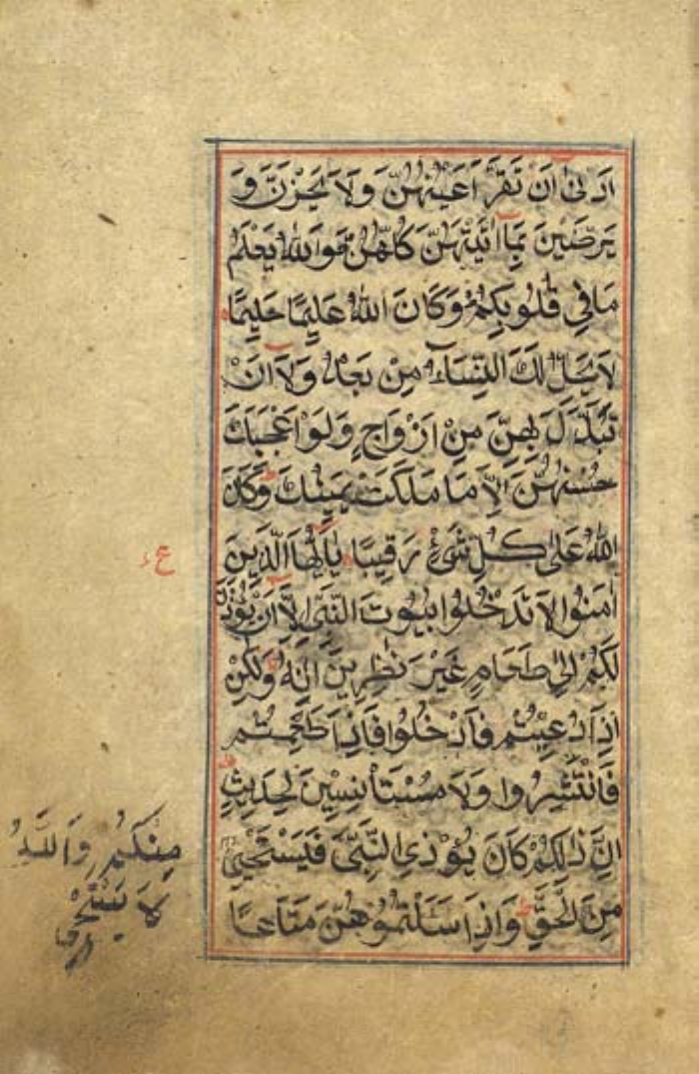 اَدْنىٰ اَنْ تَقَرَّ اَعْيُنُهُنَّ وَلَا يَحْزَنَّ وَ
يَرْضَيْنَ بِمَا اٰتَيْتَهُنَّ كُلُّهُنَّ وَاللّٰهُ يَعْلَمُ
مَا فِي قُلُوبِكُمْ وَكَانَ اللّٰهُ عَلِيْمًا حَلِيمًا
لَا يَحِلُّ لَكَ النِّسَاءُ مِنْ بَعْدُ وَلَا اَنْ
تَبَدَّلَ بِهِنَّ مِنْ اَزْوَاجٍ وَلَوْ اَعْجَبَكَ
حُسْنُهُنَّ اِلَّا مَا مَلَكَتْ يَمِيْنُكَ وَكَانَ
اللّٰهُ عَلٰى كُلِّ شَيْءٍ رَقِيبًا يٰاَيُّهَا الَّذِينَ
اٰمَنُوا لَا تَدْخُلُوا بُيُوتَ النَّبِيِّ اِلَّا اَنْ يُؤْذَنَ
لَكُمْ اِلٰى طَعَامٍ غَيْرَ نٰظِرِينَ اِنٰهُ وَلٰكِنْ
اِذَا دُعِيْتُمْ فَادْخُلُوا فَاِذَا طَعِمْتُمْ
فَانْتَشِرُوا وَلَا مُسْتَأْنِسِينَ لِحَدِيثٍ
اِنَّ ذٰلِكُمْ كَانَ يُؤْذِي النَّبِيَّ فَيَسْتَحْيِ
مِنَ الْحَقِّ وَاِذَا سَاَلْتُمُوْهُنَّ مَتَاعًا
ع
مِنْكُمْ وَاللّٰهُ
لَا يَسْتَحْيِ